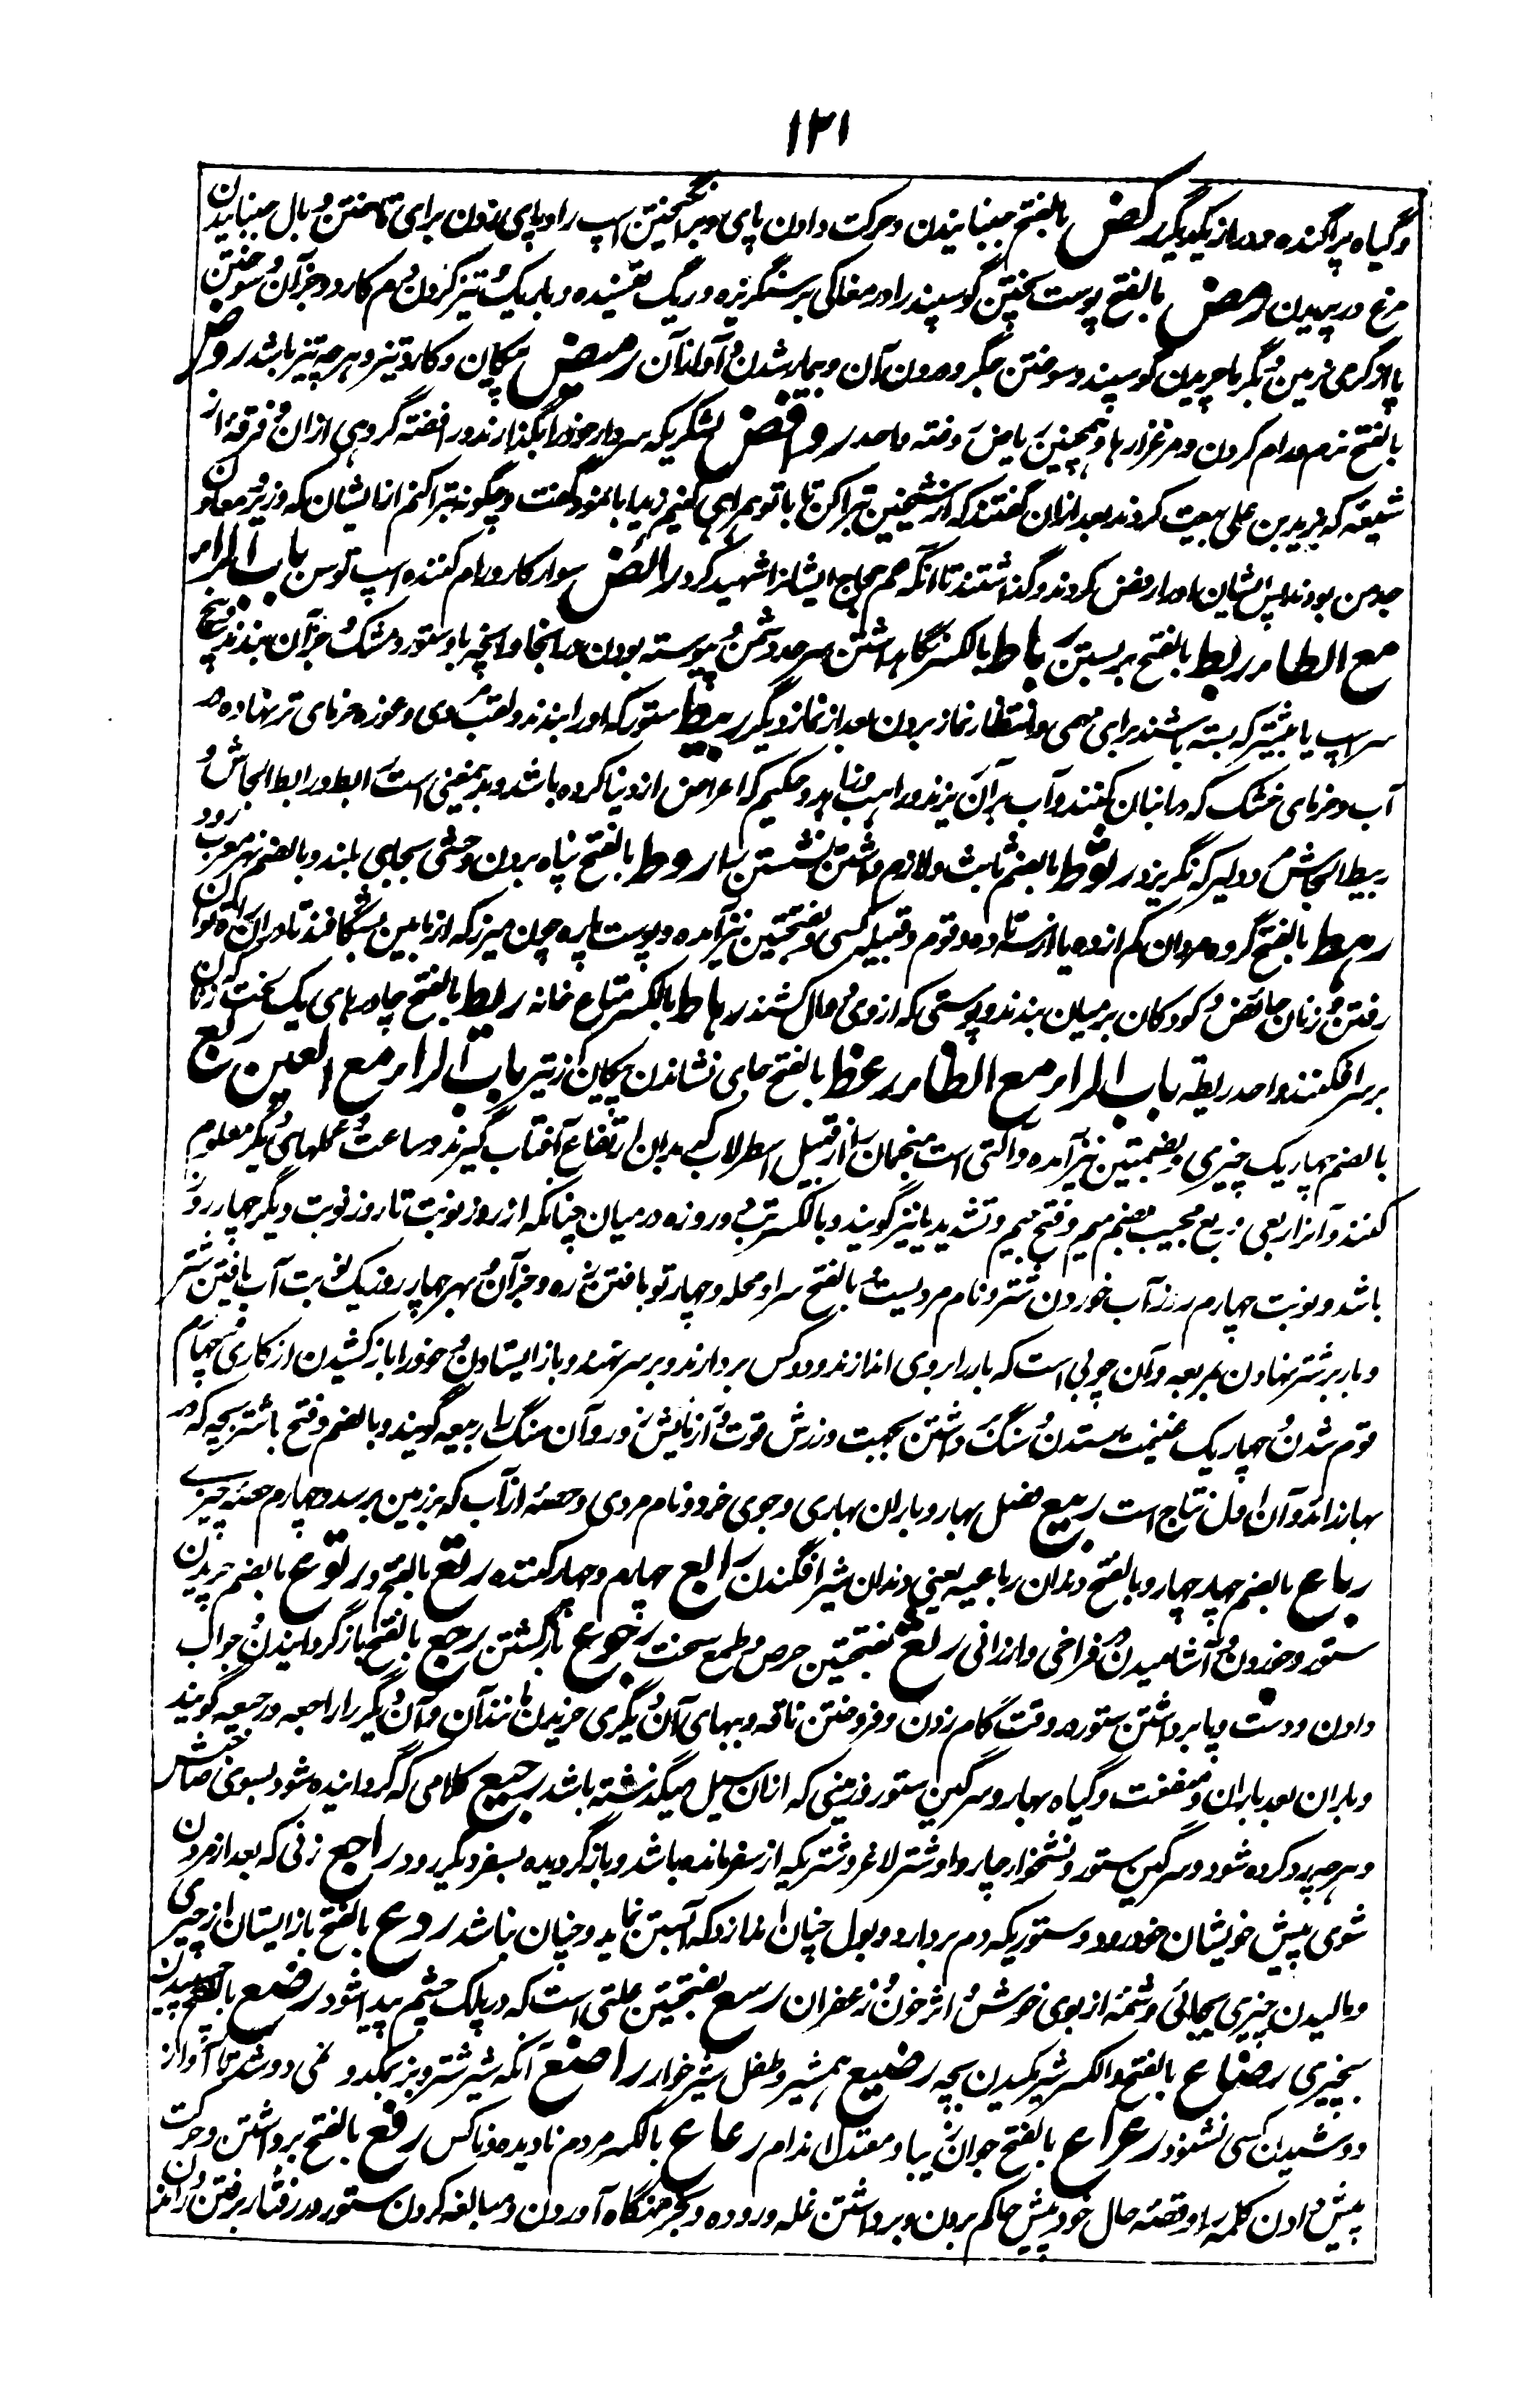 ۱۲۱
و گیاه پراگنده دور از یکدیگر رکض بالفتح جنبانیدن و حرکت دادن پای و برانگیختن اسپ را و پای زدن برای تاختن و بال جنبانیدن
مرغ در پریدن رمض بالفتح پوست پختن گوسپند را در مغاکی بر سنگریزه و ریگ تفسیده و باریک و تیز کردن دم کارد و جز آن و سوختن
پا از گرمی زمین و بگرما چریدن گوسپند و سوختن جگر و درون آن و بیمار شدن و آوازه آن رمیض پیکان و کارد تیز و هرچه تیز باشد روض
بالفتح نرم و رام کردن و مرغزارها و همچنین ریاض روضه واحد روافض لشکریکه سردار خود را بگذارند رافضه گروهی ازان و فرقه از
شیعه که بزید بن علی بیعت کردند بعد ازان گفتند که از شیخین تبرا کن تا با تو همراهی کنیم زید ابا نمود و گفت چگونه تبرا کنم از ایشان که وزیر و معاون
جد من بودند پس ایشان او را رفض کردند و گذاشتند تا آنکه حجاج ایشانرا شهید کرد رائض سوار کار و رام کننده اسپ توسن باب الراء
مع الطاء ربط بالفتح بر بستن رباط بالکسر نگاهداشتن سرحد دشمن و پیوسته بودن در انجا و آنچه با و ستور و مشک و جز آن بندند و پنج
سر اسپ یا بیشتر که بسته باشند برای مهمی و انتظار نماز بردن بعد از نماز دیگر ربیط ستور که او را بندند و لقب مردی و غوره خرمای تر نهاده در
آب و خرمای خشک که در انبان کنند و آب بر آن ریزند و راهب و زاهد و حکیم که اعراض از دنیا کرده باشد و بدین معنی است رابط و رابط الجاش و
ربیط الجاش مرد دلیر که نگریزد رثوط بالضم ثابت و لازم داشتن نشستن را روط بالفتح پناه بردن وحشی بجای بلند و بالضم نهر معرب رود
رهط بالفتح گروه مردان کم از ده یا از سه تا ده و قوم و قبیله کسی و بفتحتین نیز آمده و پوست پاره چون میزر که از پایین بشگافند تا در آن راه توان
رفتن و زنان حائض و کودکان بر میان بندند و پوستی که از وی دوال کشند رهاط بالکسر متاع خانه ریط بالفتح چادرهای یک لخت که زنان
بر سر افگنند واحد ریطه باب الراء مع الظاء رعظ بالفتح جای نشاندن پیکان از تیر باب الراء مع العین ربع
بالضم چهار یک چیزی و بضمتین نیز آمده و آلتی است منجمان را از قبیل اسطرلاب که بدان ارتفاع آفتاب گیرند و ساعت و عملهای دیگر معلوم
کنند و آنرا ربعی و ربع مجیب بضم میم و فتح جیم و تشدید یا نیز گویند و بالکسر تب دو روزه در میان چنانکه از روز نوبت تا روز نوبت دیگر چهار روز
باشد و نوبت چهارم روز آب خوردن شتر و نام مردیست و بالفتح سرا و محله و چهار تو بافتن زره و جز آن و بهر چهار روز یک نوبت آب یافتن شتر
و بار بر شتر نهادن بمربعه و آن چوبی است که بار را بر وی اندازند و دو کس بردارند و بر ستور نهند و باز ایستادن و خود را باز کشیدن از کاری و چهارم
قوم شدن و چهار یک غنیمت ستدن و سنگ برداشتن بجهت ورزش قوت و آزمایش زور و آن سنگ را ربیعه گویند و بالضم و فتح با شتر بچه که در
بهار زاید و آن اول نتاج است ربیع فصل بهار و باران بهاری و جوی خرد و نام مردی و حصه از آب که بزمین برسد و چهارم حصه چیزے
رباع بالضم چهار چهار و بالفتح دندان رباعیه یعنی دندان شیر افگندن رابع چهارم و چهار کننده رتع بالفتح و رتوع بالضم چریدن
ستور و خوردن و آشامیدن در فراخی و ارزانی رثع بفتحتین حرص و طمع سخت رجوع بازگشتن رجع بالفتح باز گردانیدن و جواب
دادن و دست و پا برداشتن ستور در وقت گام زدن و فروختن ناقه و ببهای آن دیگری خریدن مانند آن و آن دیگر را راجعه و رجیعه گویند
و باران بعد باران و منفعت و گیاه بهار و سرگین ستور و زمینی که ازان سیل میگذشته باشد رجیع کلامی که گردانیده شود بسوی صاحبش
و هرچه رد کرده شود و سرگین ستور و نشخوار چاروا و شتر لاغر و شتریکه از سفر مانده باشد و باز گردیده بسفر دیگر رود راجع زنی که بعد از مردن
شوی پیش خویشان خود رود و ستوریکه دم بردارد و بول چنان اندازد که آبستن نماید و چنان نباشد ردع بالفتح باز ایستادن از چیزی
و مالیدن چیزی بجائی و شمه از بوی خوش و اثر خون و زعفران رسع بفتحتین علتی است که در پلک چشم پیدا شود رضع بالفتح چسپیدن
بچیزی رضاع بالفتح و الکسر شیر مکیدن بچه رضیع همشیر و طفل شیر خوار راضع آنکه شیر شتر و بز بمکد و نمی دوشد تا آواز
دوشیدن کسی نشنود رعراع بالفتح جوان زیبا و معتدل اندام رعاع بالکسر مردم نادیده و ناکس رفع بالفتح برداشتن و حرکت
پیش دادن کلمه را و قصه حال خود پیش حاکم بردن و برداشتن غله دروده و بخرمنگاه آوردن و مبالغه کردن ستور در رفتار برفتن و راندن